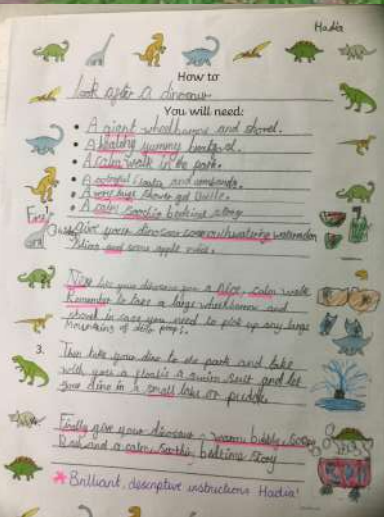 Hadia
How to
Look after a dinosaur
You will need:
• A giant wheelbarrow and shovel.
• A healthy yummy breakfast.
• A calm walk in the park.
• A colourful floatie and armbands.
• A very huge shower and bubble.
• A calm soothing bedtime story
First
give your dinosaur some mouthwatering watermelon
slices and some apple juice.
Next take your dinosaur on a nice, calm walk
Remember to take a large wheelbarrow and
shovel in case you need to pick up any large
mountains of dino poop!.
3. Then take your dino to the park and take
with you a floatie a swim suit and let
your dino in a small lake or puddle.
Finally give your dinosaur a warm, bubbly, soapy
Bath and a calm, soothing, bedtime story
Brilliant, descriptive instructions Hadia!